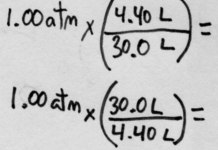 1.00 atm × (4.40 L / 30.0 L) =
1.00 atm × (30.0 L / 4.40 L) =